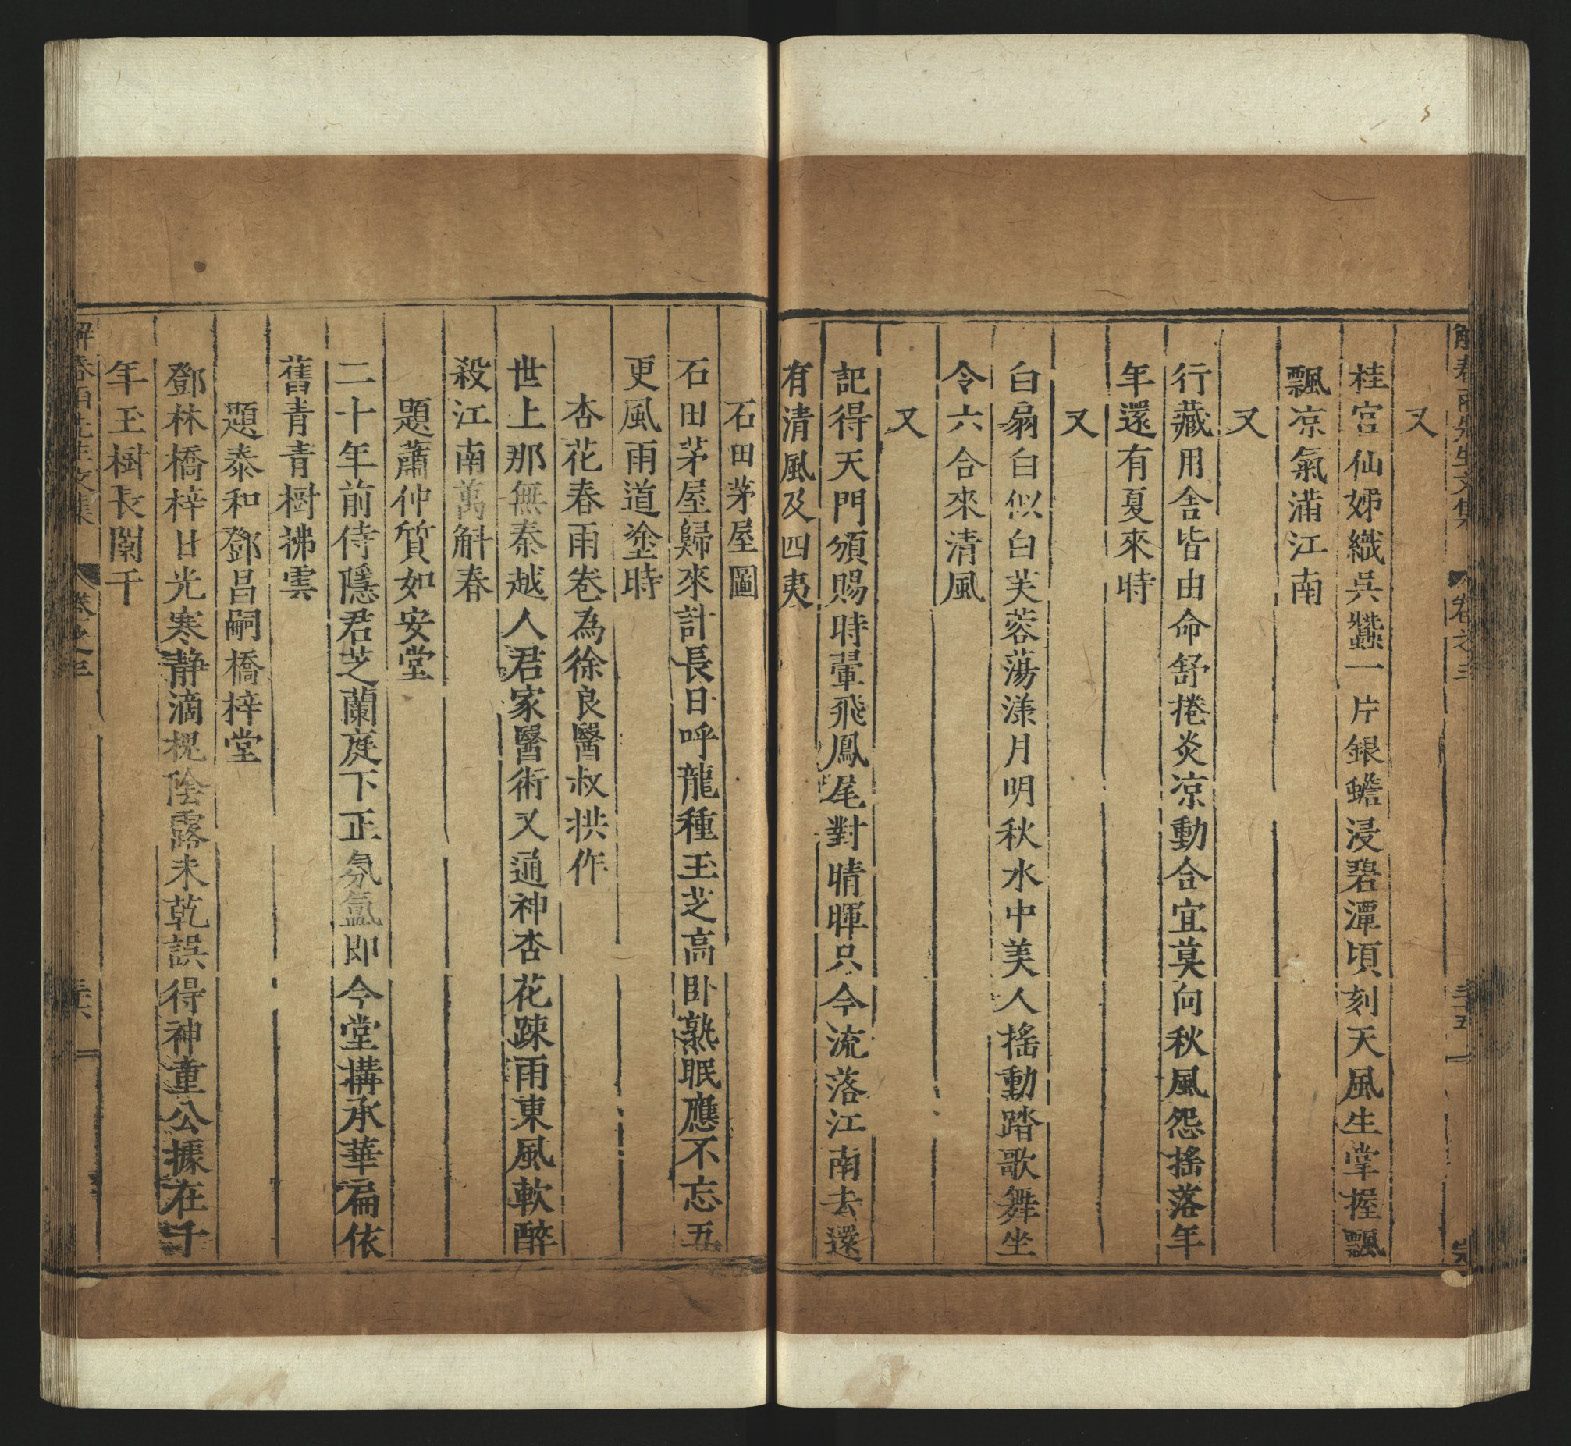 又
桂宮仙姊織吳蠶一片銀蟾浸碧潭頃刻天風生掌握飄
飄凉氣滿江南
又
行藏用舍皆由命舒捲炎凉動合宜莫向秋風怨搖落年
年還有夏來時
又
白扇白似白芙蓉蕩漾月明秋水中美人搖動踏歌舞坐
令六合來清風
又
記得天門頒賜時翬飛鳳尾對晴暉只今流落江南去還
有清風及四夷
石田茅屋圖
石田茅屋歸來計長日呼龍種玉芝高卧熟眠應不忘五
更風雨道塗時
杏花春雨卷為徐良醫叔拱作
世上那無秦越人君家醫術又通神杏花踈雨東風軟醉
殺江南萬斛春
題蕭仲質如安堂
二十年前侍隱君芝蘭庭下正氛氳即今堂搆承華扁依
舊青青樹拂雲
題泰和鄧昌嗣橋梓堂
鄧林橋梓日光寒静滴槐陰露未乾誤得神童公據在千
年玉樹長闌干
解春雨先生文集 卷之三